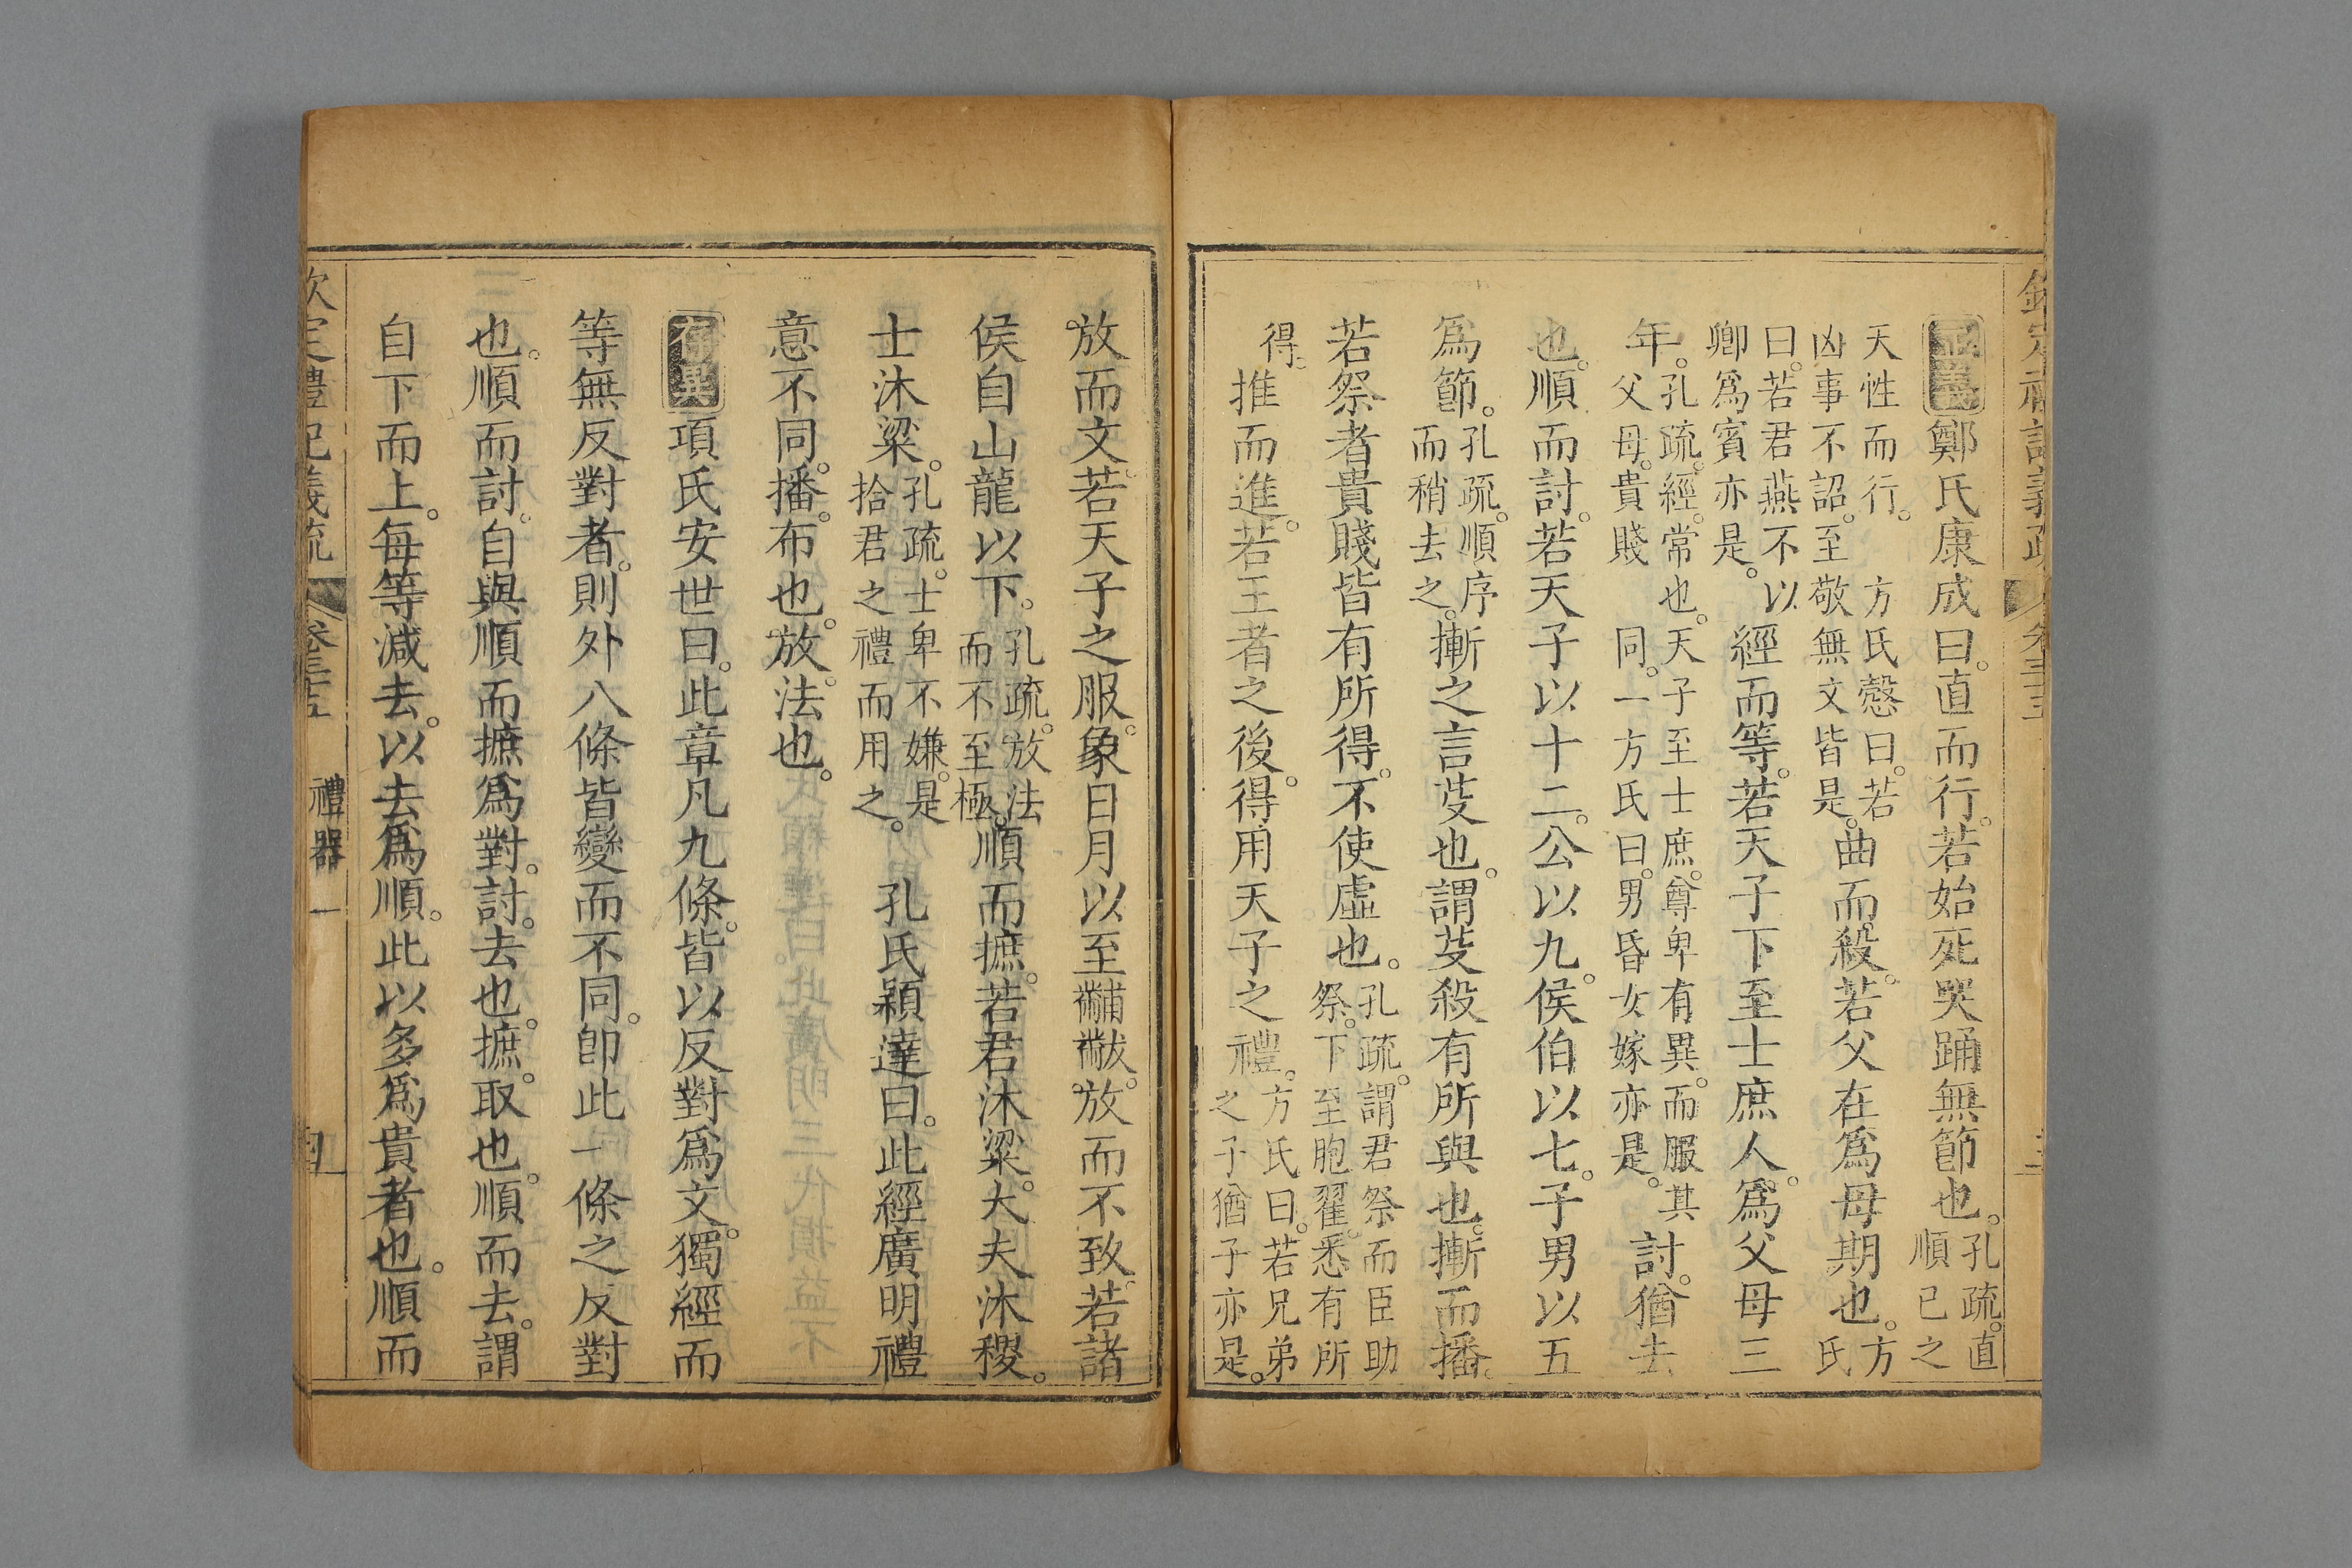 正義鄭氏康成曰。直而行。若始死哭踊無節也。孔疏。直順己之
天性而行。方氏慤曰。若凶事不詔。至敬無文皆是。曲而殺。若父在爲母期也。方氏
曰。若君燕不以卿爲賓亦是。經而等。若天子下至士庶人。爲父母三
年。孔疏。經。常也。天子至士庶。尊卑有異。而服其父母。貴賤同。一方氏曰。男昏女嫁亦是。討。猶去
也。順而討。若天子以十二。公以九。侯伯以七。子男以五
爲節。孔疏。順序而稍去之。摲之言芟也。謂芟殺有所與也。摲而播。
若祭者貴賤皆有所得。不使虛也。孔疏。謂君祭而臣助祭。下至胞翟。悉有所
得。推而進。若王者之後。得用天子之禮。方氏曰。若兄弟之子猶子亦是。
放而文。若天子之服。象日月以至黼黻。放而不致。若諸
侯自山龍以下。孔疏。放法而不至極。順而摭。若君沐粱。大夫沐稷。
士沐粱。孔疏。士卑不嫌。是拾君之禮而用之。孔氏穎達曰。此經廣明禮
意不同。播。布也。放。法也。
存異項氏安世曰。此章凡九條。皆以反對爲文。獨經而
等無反對者。則外八條皆變而不同。卽此一條之反對
也。順而討。自與順而摭爲對。討。去也。摭。取也。順而去。謂
自下而上。每等減去。以去爲順。此以多爲貴者也。順而
欽定禮記義疏 卷三十五 禮器 一